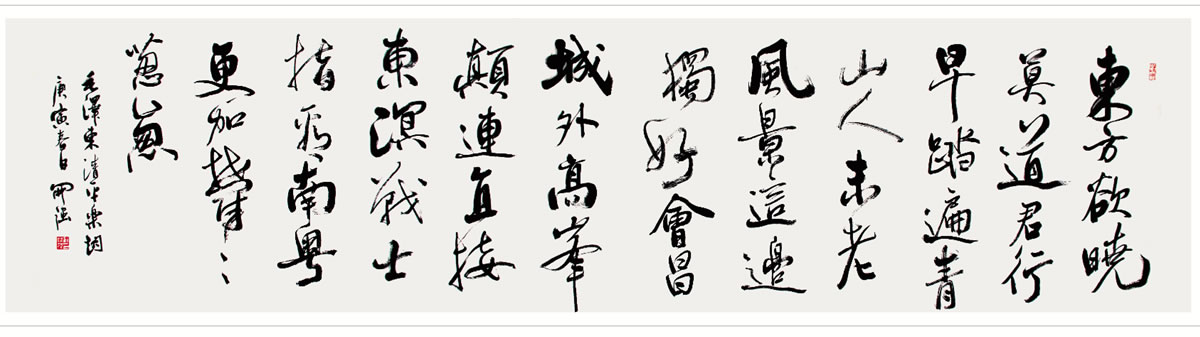 東方欲曉
莫道君行
早踏遍青
山人未老
風景這邊
獨好會昌
城外高峯
顛連直接
東溟戰士
指看南粵
更加鬱々
蔥蔥
毛澤東清平樂詞
庚寅春日